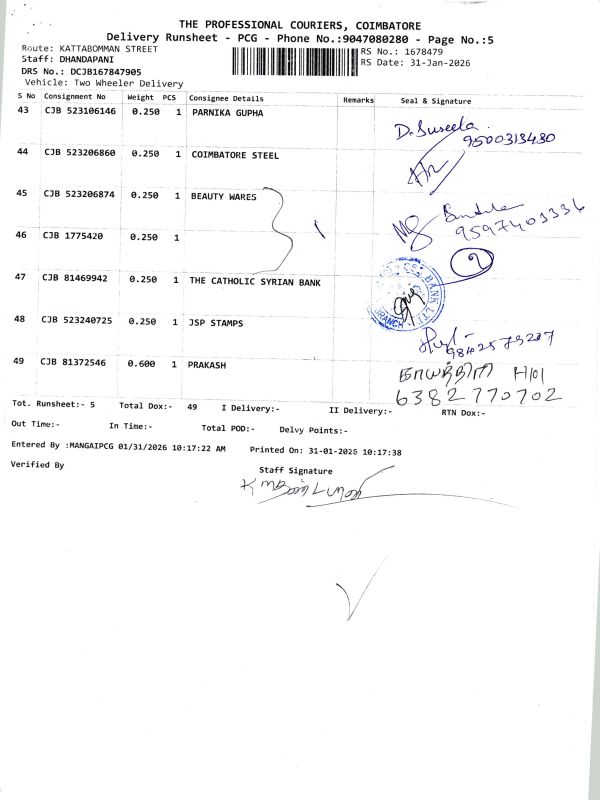 THE PROFESSIONAL COURIERS, COIMBATORE
Delivery Runsheet - PCG - Phone No.:9047080280 - Page No.:5
Route: KATTABOMMAN STREET
Staff: DHANDAPANI
DRS No.: DCJB167847905
Vehicle: Two Wheeler Delivery
RS No.: 1678479
RS Date: 31-Jan-2026
S No Consignment No Weight PCS Consignee Details Remarks Seal & Signature
43 CJB 523106146 0.250 1 PARNIKA GUPHA
D. Suseela
9500313430
44 CJB 523206860 0.250 1 COIMBATORE STEEL
45 CJB 523206874 0.250 1 BEAUTY WARES
9597403336
46 CJB 1775420 0.250 1
2
47 CJB 81469942 0.250 1 THE CATHOLIC SYRIAN BANK
BANK
BRANCH
48 CJB 523240725 0.250 1 JSP STAMPS
49 CJB 81372546 0.600 1 PRAKASH
6382770702
Tot. Runsheet:- 5 Total Dox:- 49 I Delivery:- II Delivery:- RTN Dox:-
Out Time:- In Time:- Total POD:- Delvy Points:-
Entered By :MANGAIPCG 01/31/2026 10:17:22 AM Printed On: 31-01-2026 10:17:38
Verified By
Staff Signature